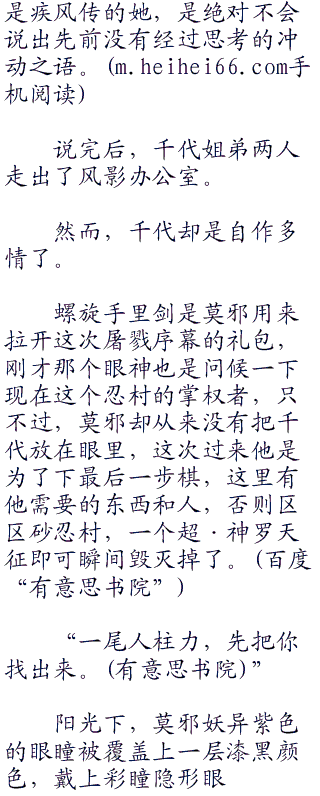 是疾风传的她，是绝对不会
说出先前没有经过思考的冲
动之语。(m.heihei66.com手
机阅读)
说完后，千代姐弟两人
走出了风影办公室。
然而，千代却是自作多
情了。
螺旋手里剑是莫邪用来
拉开这次屠戮序幕的礼包，
刚才那个眼神也是问候一下
现在这个忍村的掌权者，只
不过，莫邪却从来没有把千
代放在眼里，这次过来他是
为了下最后一步棋，这里有
他需要的东西和人，否则区
区砂忍村，一个超·神罗天
征即可瞬间毁灭掉了。(百度
“有意思书院”)
“一尾人柱力，先把你
找出来。(有意思书院)”
阳光下，莫邪妖异紫色
的眼瞳被覆盖上一层漆黑颜
色，戴上彩瞳隐形眼